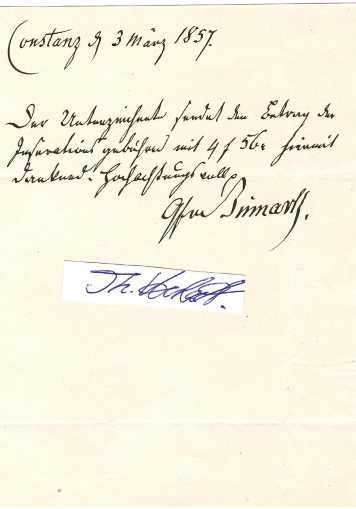 Constanz d 3 März 1857.
Der Unterzeichnete sendet den Betrag der
Insertionsgebühren mit 4 f 56 x hiermit
dankend. Hochachtungsvoll
Th.